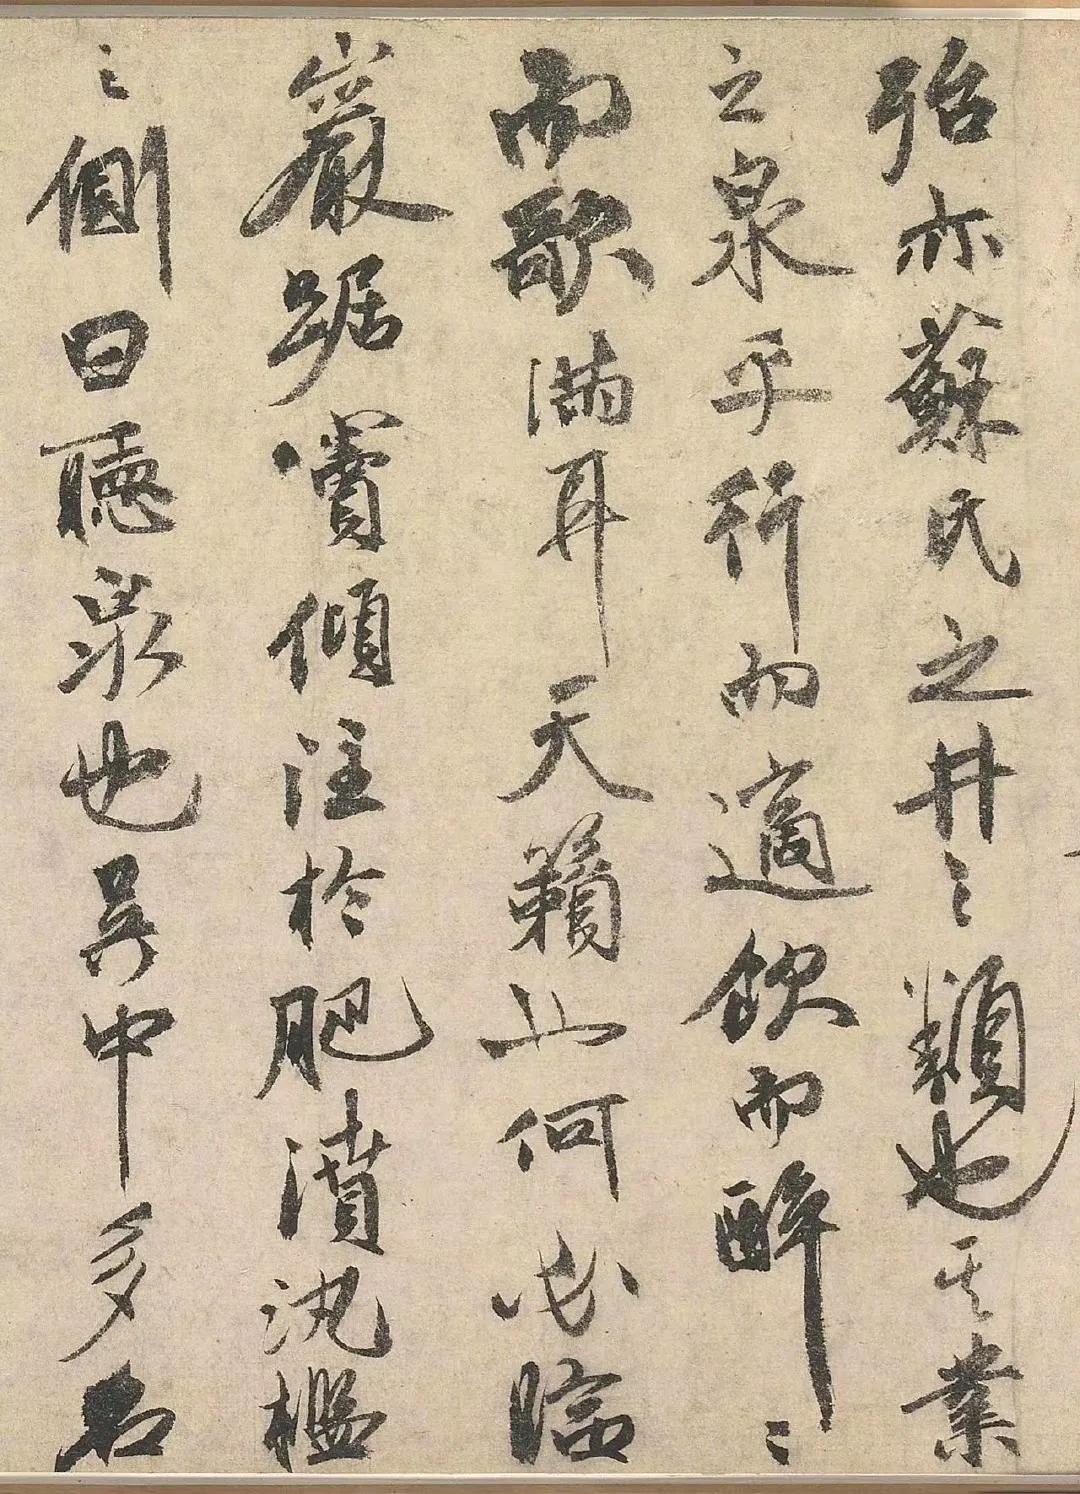 殆亦蘇氏之井之類也其業
之泉平行而適飲而醉〻
而歌滿耳天籟此何必臨
巖踞竇傾注於肥濆氿檻
〻側曰聽泉也吳中多名